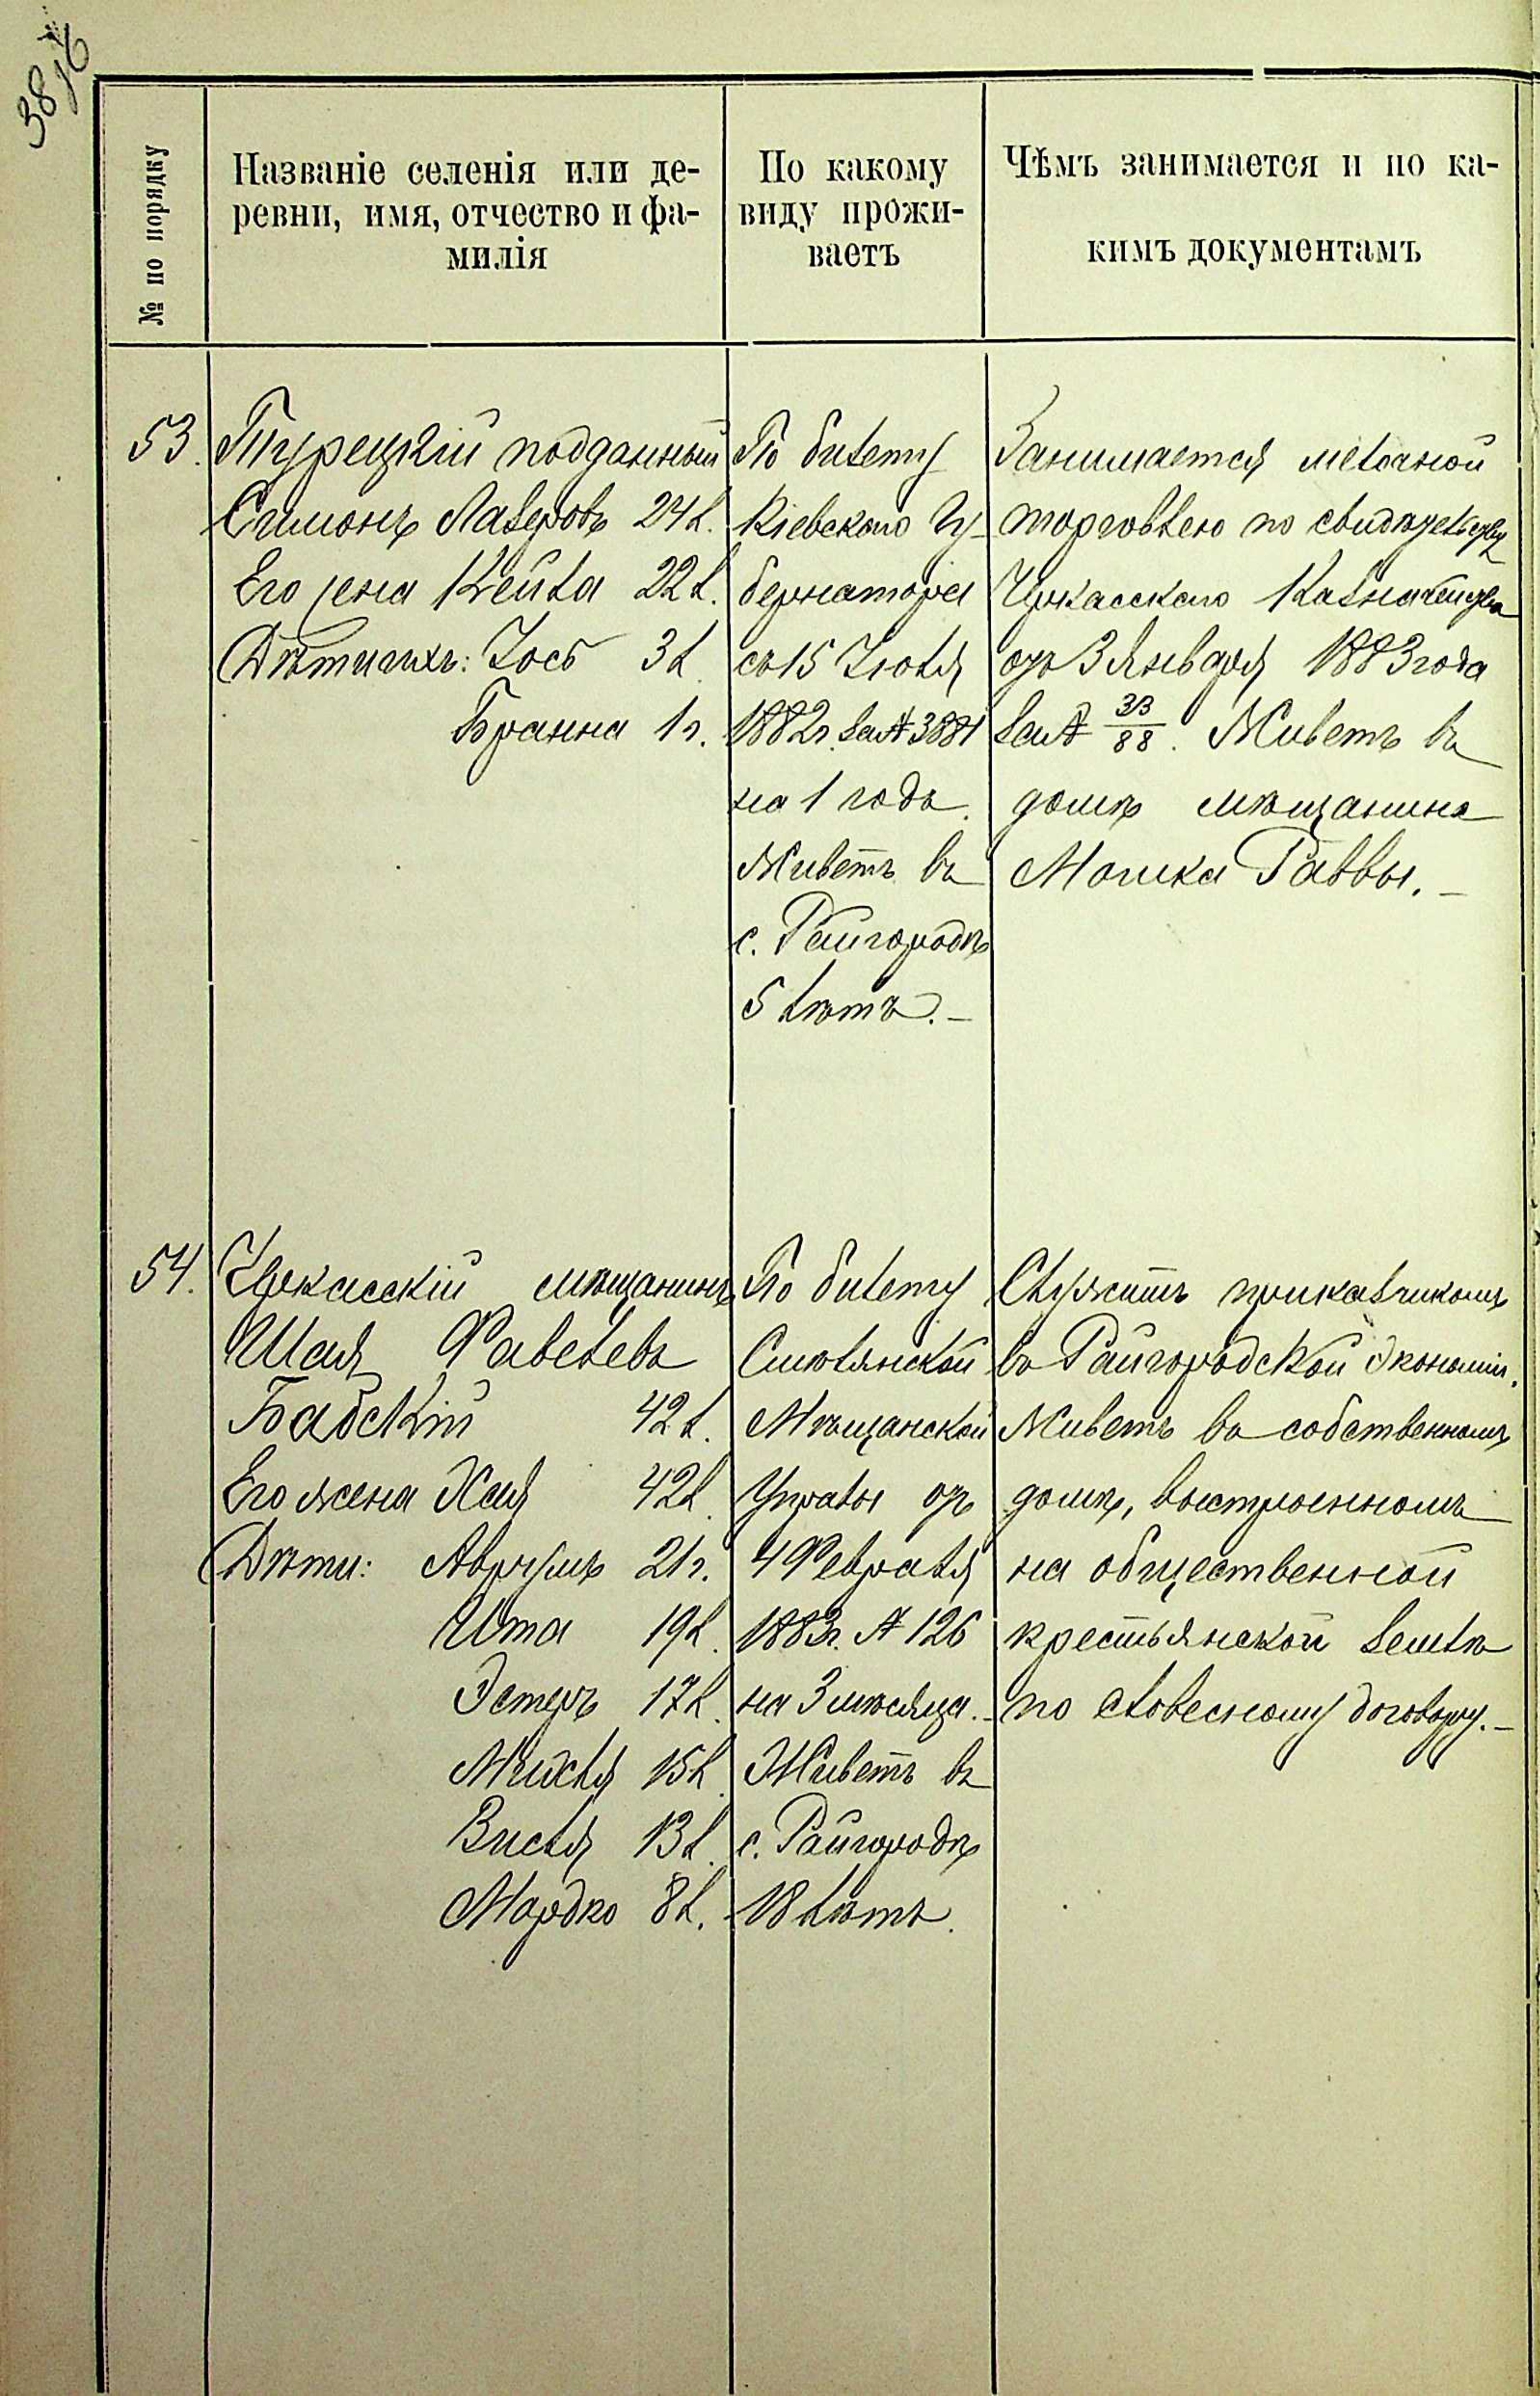 38
№ по порядку
Названіе селенія или де-
ревни, имя, отчество и фа-
милія
По какому
виду прожи-
ваетъ
Чѣмъ занимается и по ка-
кимъ документамъ
53.
Турецкій подданный
Симонъ Лазеровъ 24 л.
Его жена Крейла 22 л.
Дѣти ихъ: Іось 3 л.
Бранна 1 г.
По билету
Кіевскаго Гу-
бернатора
съ 15 Іюля
1882 г. за № 3881
на 1 годъ.
Живетъ въ
с. Райгородѣ
5 лѣтъ.–
Занимается мелочной
торговлею по свидѣтельству
Черкасскаго Казначейства
отъ 3 Января 1883 года
за № 33/88. Живетъ въ
домѣ мѣщанина
Мошка Раввы.–
54.
Черкасскій мѣщанинъ
Шая Фавелевъ
Бабскій 42 л.
Его жена Хая 42 л.
Дѣти: Аврумъ 21 г.
Юта 19 л.
Эстеръ 17 л.
15 л.
Вися 13 л.
Мордко 8 л.
По билету
Смѣлянской
Мѣщанской
Управы отъ
4 Февраля
1883 г. № 126
на 3 мѣсяца.–
Живетъ въ
с. Райгородѣ
18 лѣтъ.
Служитъ приказчикомъ
въ Райгородской экономіи.
Живетъ въ собственномъ
домѣ, выстроенномъ
на общественной
крестьянской землѣ
по словесному договору.–